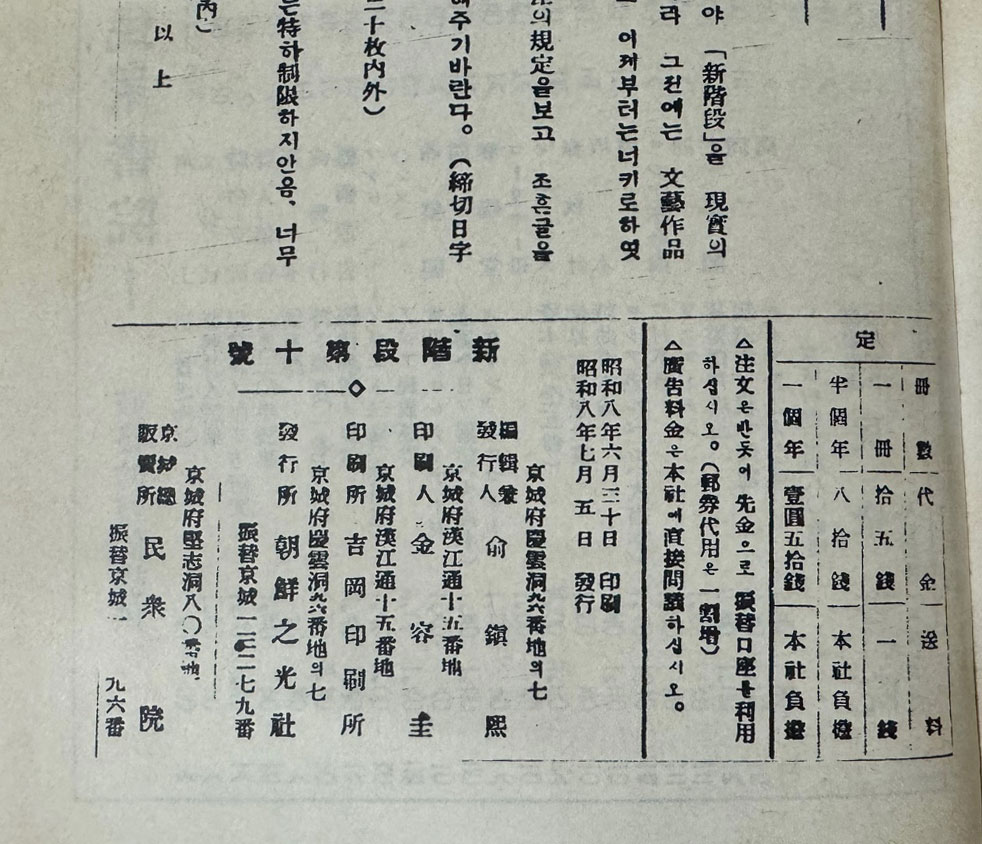 야 「新階段」을 現實의
라 그전에는 文藝作品
이제부터는너키로하엿
의規定을보고 조흔글을
해주기바란다。(締切日字
二十枚內外)
는特히制限하지안음、너무
內)
以上
定
冊數 代金 送料
一冊 拾五錢 一錢
半個年 八拾錢 本社負擔
一個年 壹圓五拾錢 本社負擔
△注文은반듯이 先金으로 振替口座를利用
하십시오。(郵券代用은 一割增)
△廣告料金은本社에直接問議하십시오。
昭和八年六月三十日 印刷
昭和八年七月 五 日 發行
新階段第十號
京城府慶雲洞九六番地의七
編輯兼發行人 兪鎭熙
京城府漢江通十五番地
印刷人 金容圭
京城府漢江通十五番地
印刷所 吉岡印刷所
京城府慶雲洞九六番地의七
發行所 朝鮮之光社
振替京城一二二七九番
京城府堅志洞八〇番地
京城總販賣所 民衆院
振替京城一 九六番